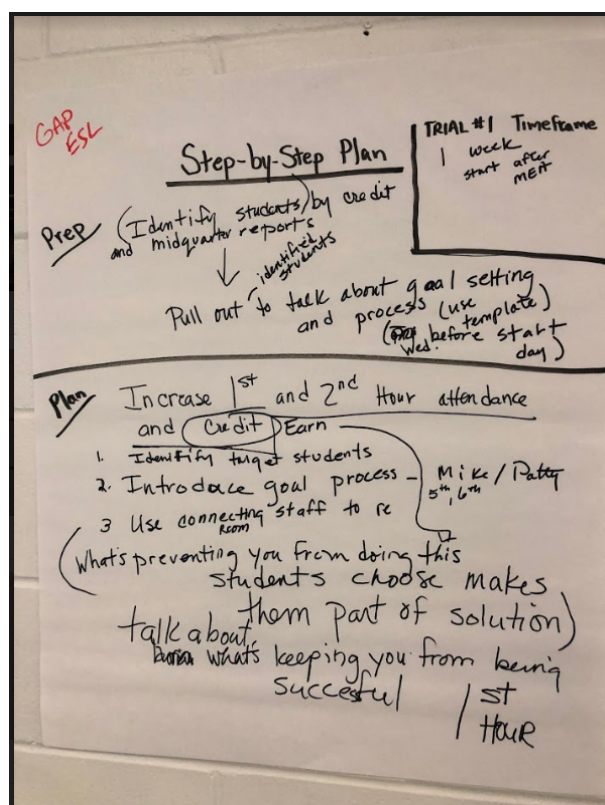 GAP
ESL
Step-by-Step Plan
TRIAL #1 Timeframe
1 week
start after
MEA
Prep
(Identify students) by credit
and midquarter reports
identified
students
Pull out to talk about goal setting
and process (use
template)
( before start
Wed. day)
Plan
Increase 1st and 2nd Hour attendance
and Credit Earn
1. Identify target students
2. Introduce goal process - Mike / Patty
5th, 6th
3 Use connecting staff to re
Room
(What's preventing you from doing this
students choose makes
them part of solution)
talk about
what's keeping you from being
succesful
1st
HOUR